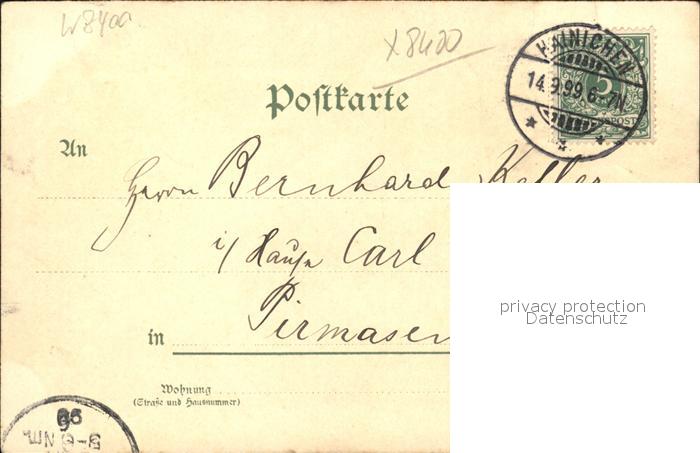 W8400
X8400
HAINICHEN
14.9.99 6-7N.
5
Postkarte
An
Herrn Bernhard Keller
i/ Hause Carl
in Pirmasen
Wohnung
(Straße und Hausnummer)
privacy protection
Datenschutz
99
3-6Nm.